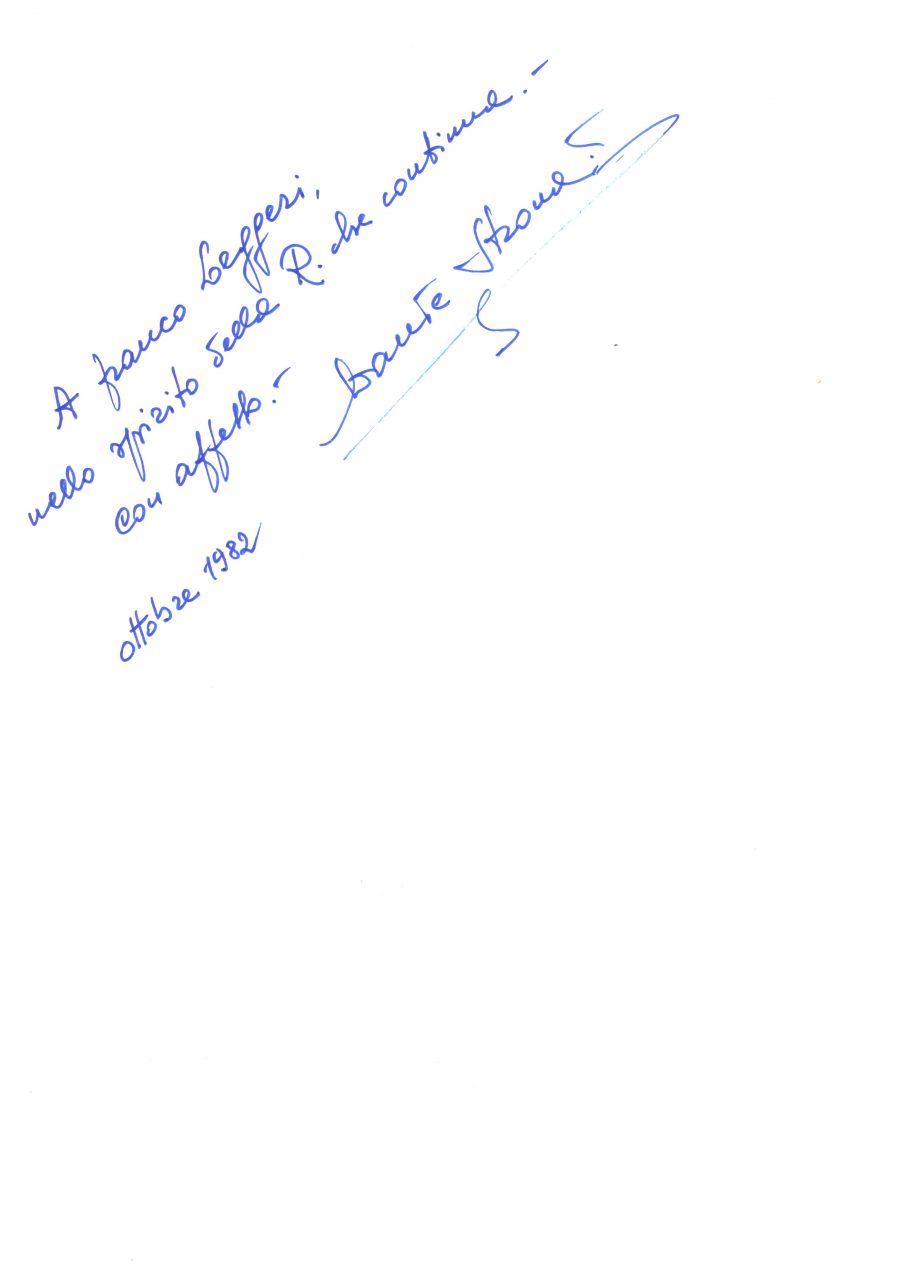 A Franco Leggeri,
nello spirito della R. che continua.-
con affetto.-
Dante Strona
ottobre 1982